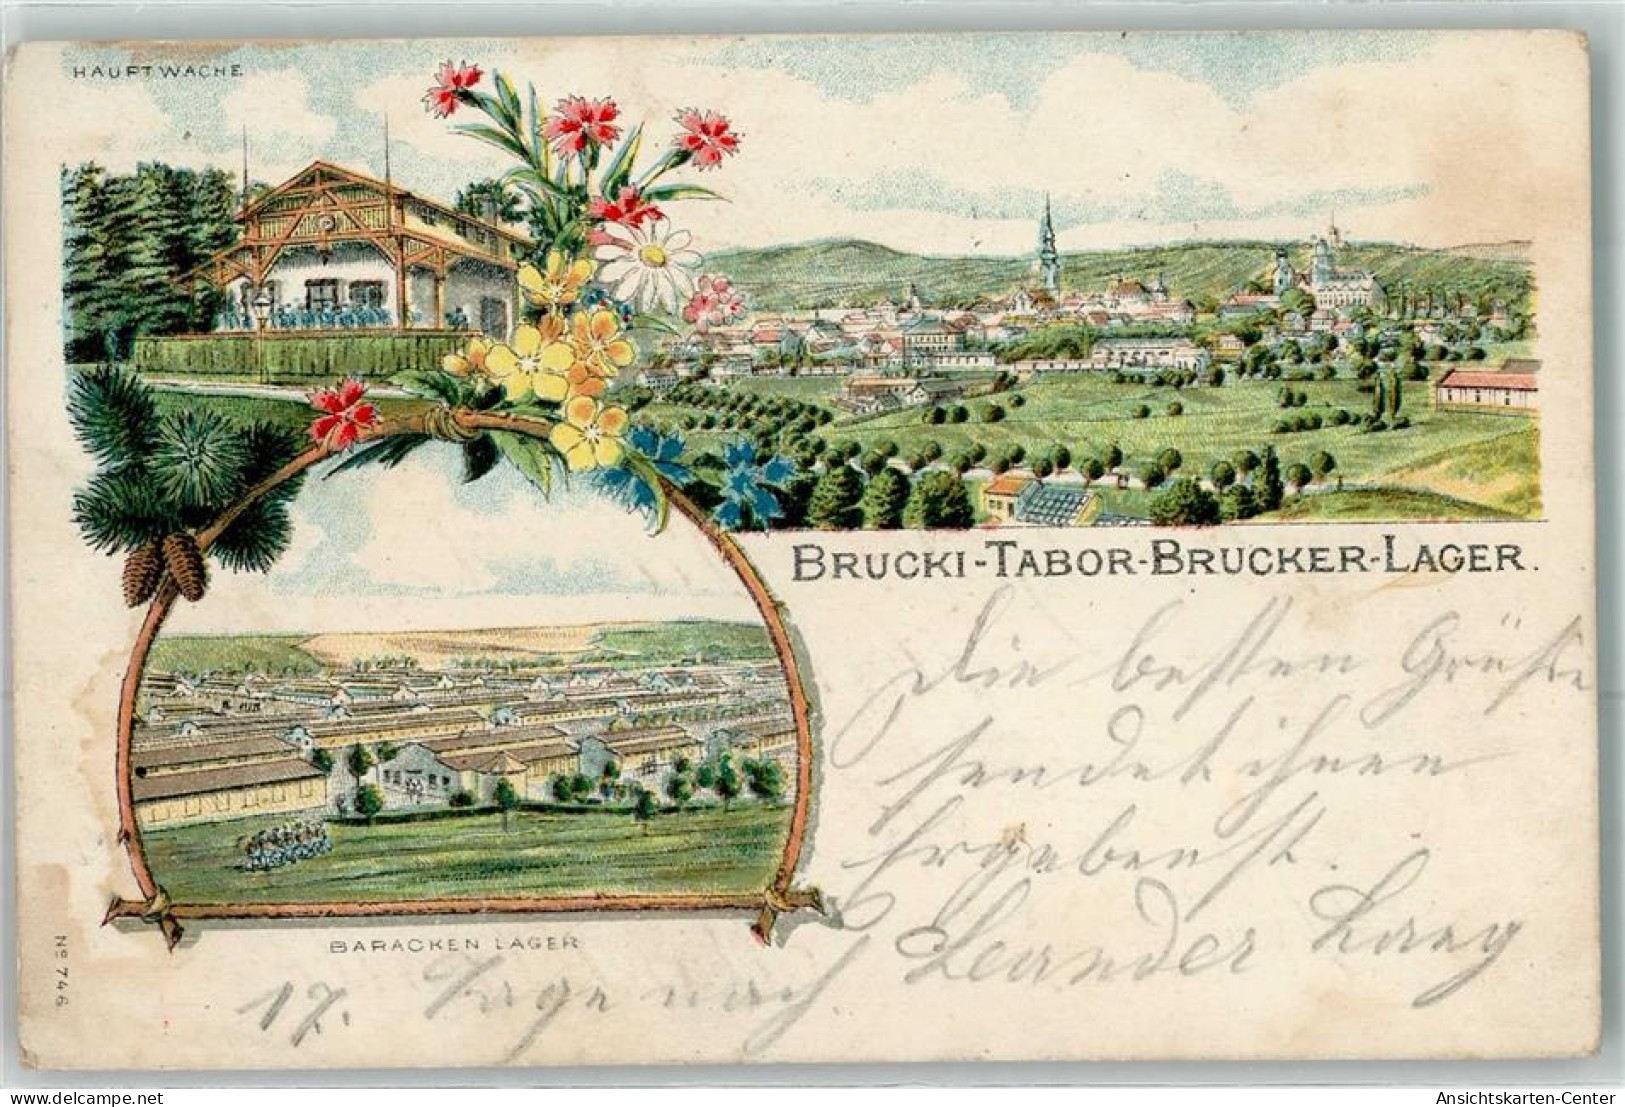 HAUPTWACHE
BRUCKI-TABOR-BRUCKER-LAGER.
Die besten Grüße
sendet ihnen
Ergebenst.
Leander Lang
BARACKEN LAGER
17. Tage nach
No 746
delcampe.net
Ansichtskarten-Center